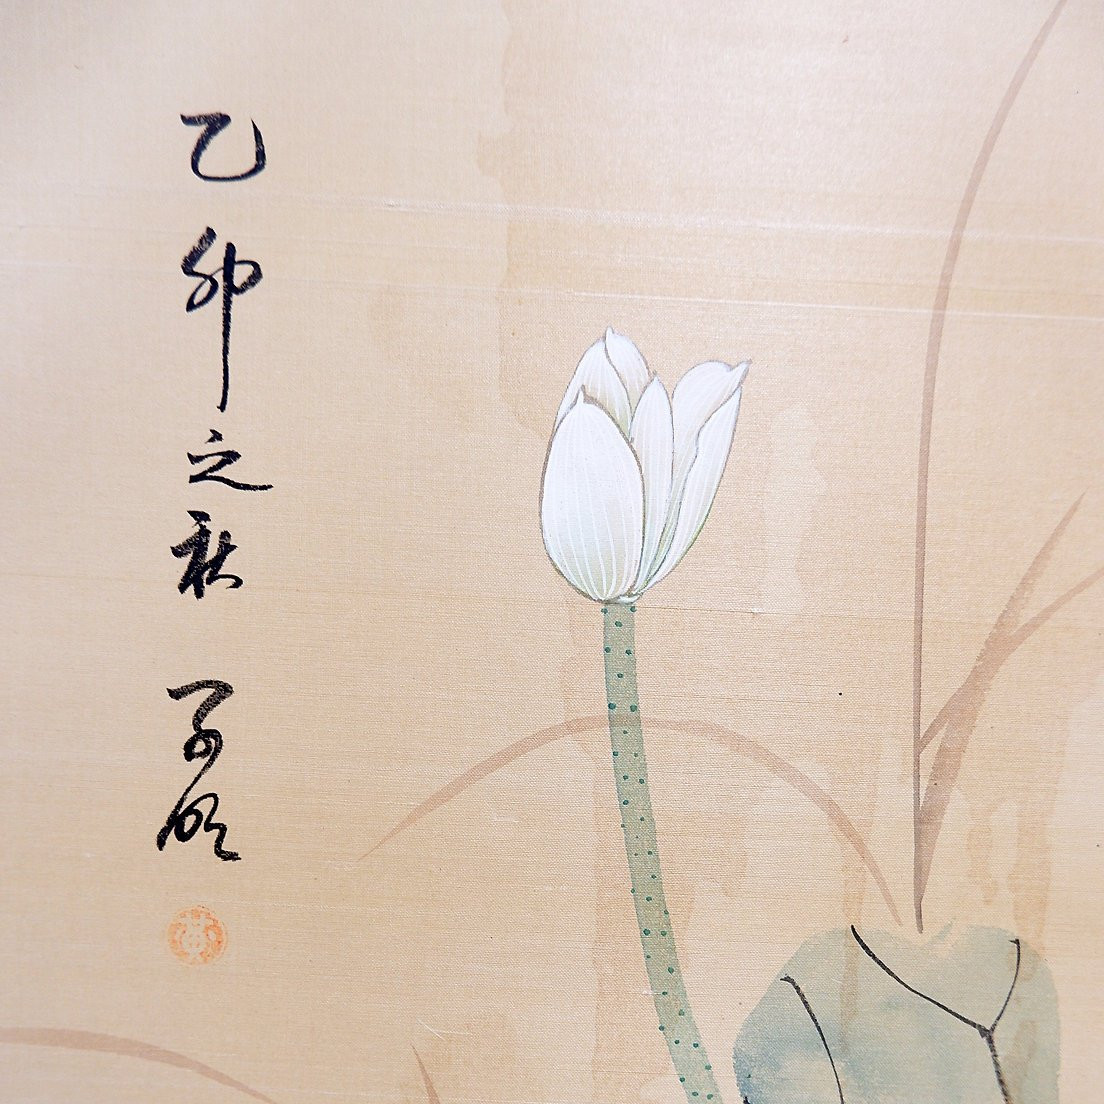 乙卯之秋
黄